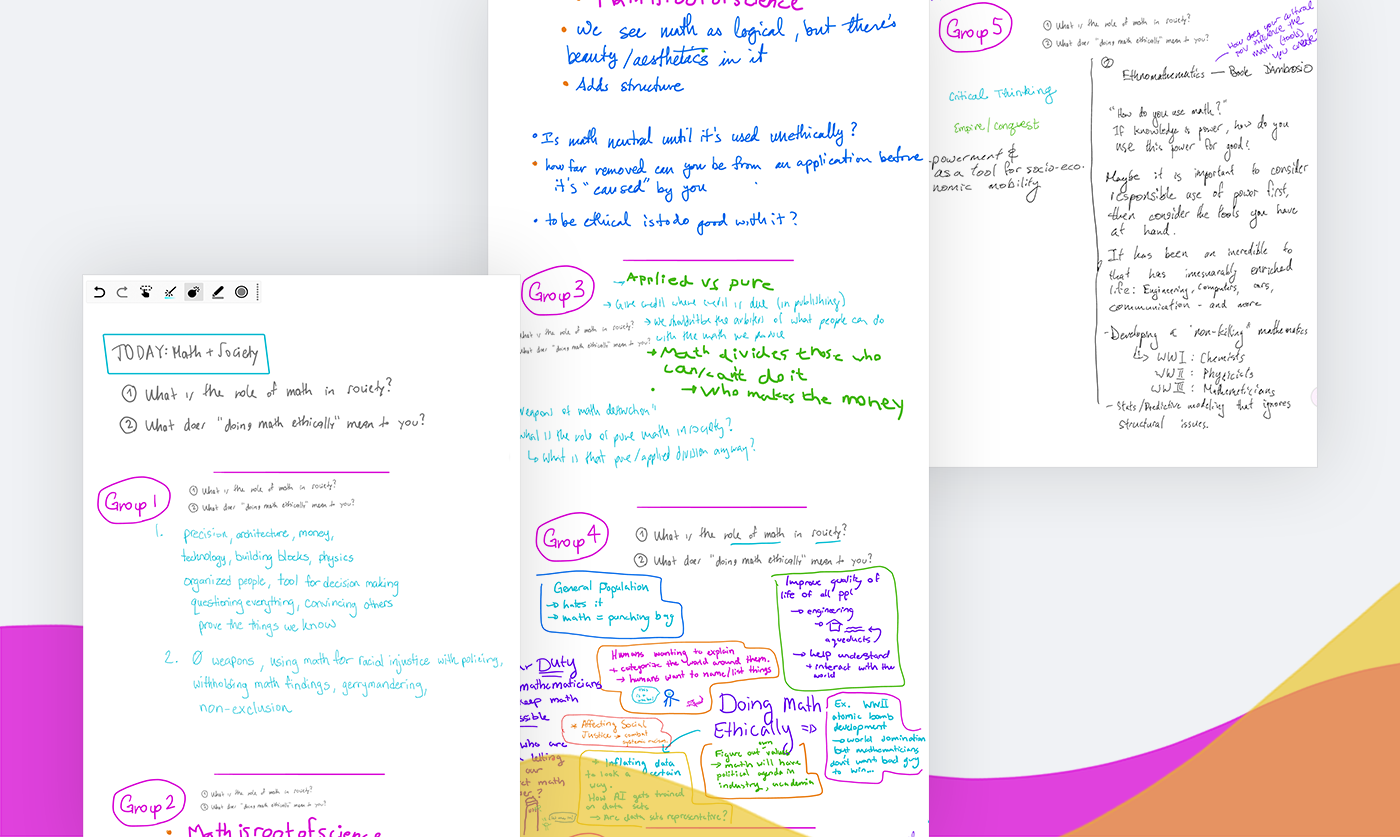 TODAY: Math + Society
① What is the role of math in society?
② What does "doing math ethically" mean to you?
Group 1
① What is the role of math in society?
② What does "doing math ethically" mean to you?
1. precision, architecture, money,
technology, building blocks, physics
organized people, tool for decision making
questioning everything, convincing others
prove the things we know
2. Ø weapons, using math for racial injustice with policing,
withholding math findings, gerrymandering,
non-exclusion
Group 2
① What is the role of math in society?
② What does "doing math ethically" mean to you?
• Math is root of science
• Math is root of science
• We see math as logical, but there's
beauty/aesthetics in it
• Adds structure
• Is math neutral until it's used unethically?
• how far removed can you be from an application before
it's "caused" by you
• to be ethical is to do good with it?
Group 3
→ Applied vs pure
→ Give credit where credit is due (in publishing)
What is the role of math in society?
→ We shouldn't be the arbiters of what people can do
with the math we produce
What does "doing math ethically" mean to you?
→ Math divides those who
can/can't do it
→ Who makes the money
weapons of math destruction"
what is the role of pure math in society?
↳ What is that pure/applied division anyway?
Group 4
① What is the role of math in society?
② What does "doing math ethically" mean to you?
General Population
→ hates it
→ math = punching bag
Improve quality of
life of all ppl
→ engineering
→
aqueducts
→ help understand
+ interact with the
world
Humans wanting to explain
+ categorize the world around them.
→ humans want to name/list things
Duty
mathematicians
keep math
who are
letting
our
math
Doing Math
Ethically ⇒
* Affecting Social
Justice → combat
systemic racism
Ex. WWII
atomic bomb
development
→ world domination
but mathematicians
don't want bad guy
to win...
Figure out own values
→ math will have
political agenda in
industry, academia
+ Inflating data
to look a certain
way.
How AI gets trained
on data sets
→ Are data sets representative?
Group 5
① What is the role of math in society?
② What does "doing math ethically" mean to you?
How does your cultural
you influence the
math (tools)
you create?
Critical Thinking
Empire/Conquest
powerment &
as a tool for socio-eco-
nomic mobility
②
Ethnomathematics — Book D'Ambrosio
"How do you use math?"
If knowledge is power, how do you
use this power for good?
Maybe it is important to consider
responsible use of power first,
then consider the tools you have
at hand.
It has been an incredible to
that has imesuarably enriched
life: Engineering, computers, cars,
communication - and more
- Developing a "non-killing" mathematics
↳ WWI: Chemists
WWII: Physicists
WWIII: Mathematicians
- Stats/Predictive modeling that ignores
structural issues.